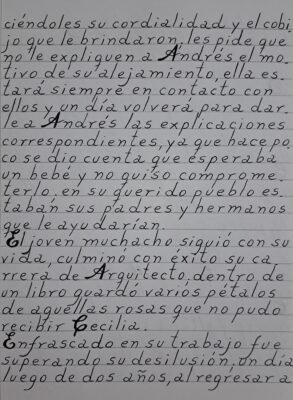 ciéndoles su cordialidad y el cobi
jo que le brindaron, les pide que
no le expliquen a Andrés el mo-
tivo de su alejamiento, ella es
tará siempre en contacto con
ellos y un día volverá para dar
le a Andrés las explicaciones
correspondientes, ya que hace po
co se dio cuenta que esperaba
un bebé y no quiso comprome.
terlo. en su querido pueblo es
taban sus padres y hermanos
que le ayudarían.
El joven muchacho siguió con su
vida, culminó con éxito su ca
rrera de Arquitecto. dentro de
un libro guardó varios pétalos
de aquellas rosas que no pudo
recibir Cecilia.
Enfrascado en su trabajo fue
superando su desilusión. un día
luego de dos años, al regresar a